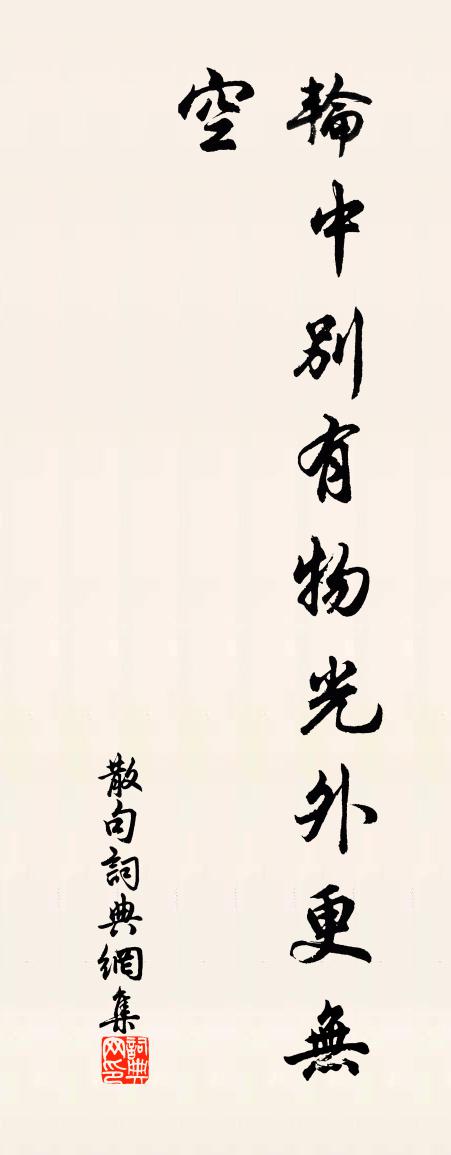 輪中別有物光外更無
空
散句詞典網集
詞典网印